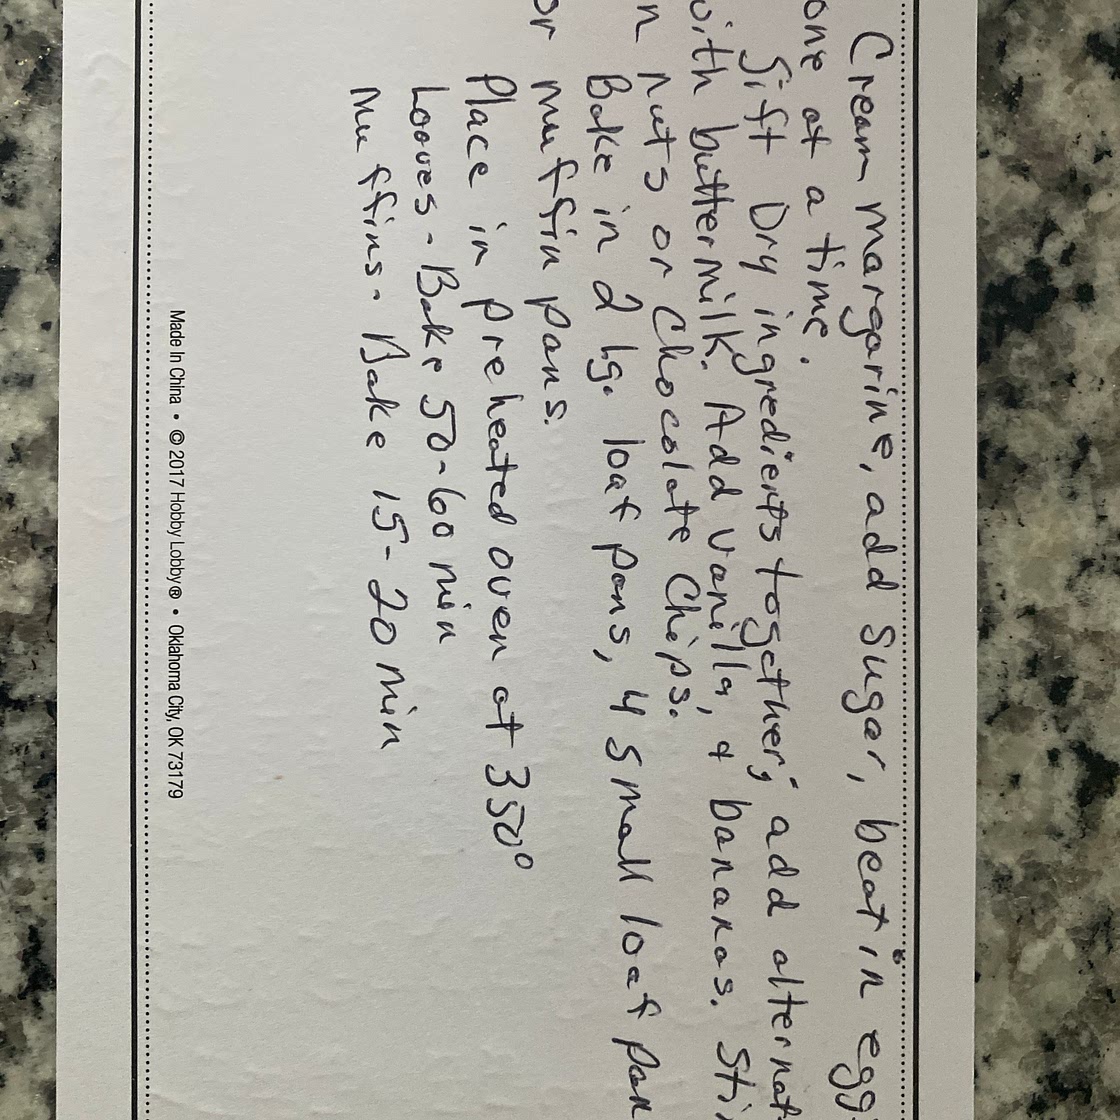 Cream margarine, add sugar, beat in egg
one at a time.
Sift Dry ingredients together; add alternat
with buttermilk. Add vanilla, & bananas. Sti
n nuts or Chocolate Chips.
Bake in 2 lg. loaf pans, 4 small loaf pan
or muffin pans.
Place in preheated oven at 350°
Looves - Bake 50-60 min
Muffins - Bake 15-20 min
Made In China • © 2017 Hobby Lobby® • Oklahoma City, OK 73179